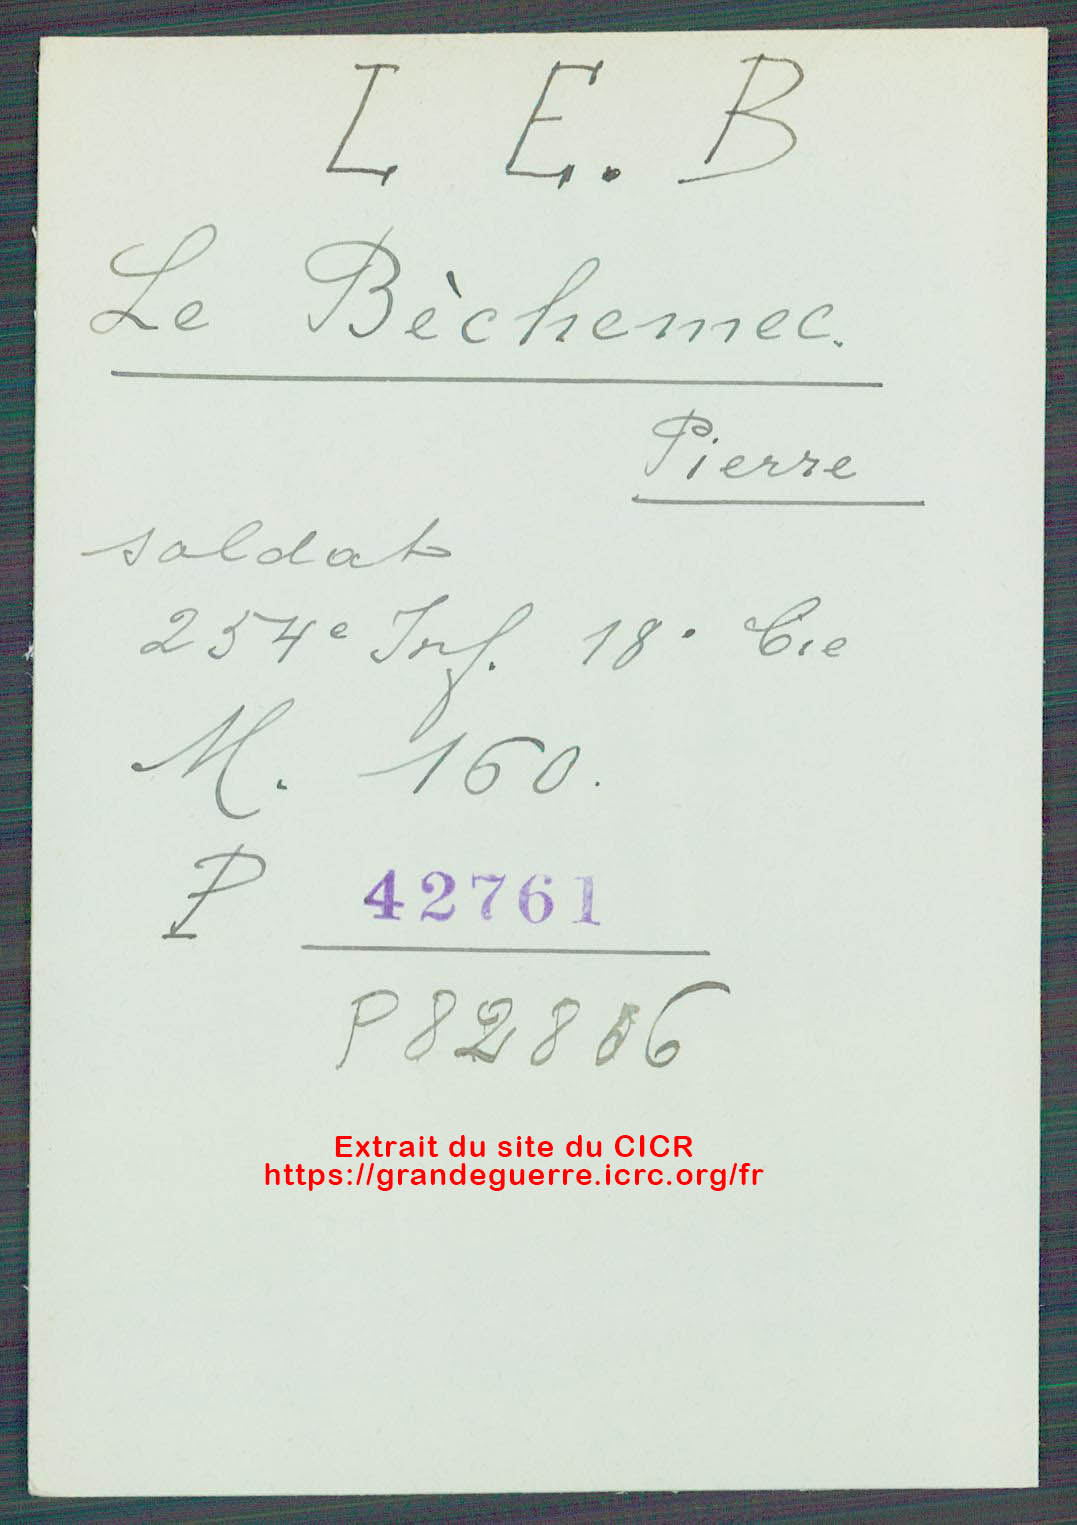 L E. B
Le Bèchemec.
Pierre
soldat
254e Inf. 18e Cie
M. 160.
P 42761
P 82816
Extrait du site du CICR
https://grandeguerre.icrc.org/fr